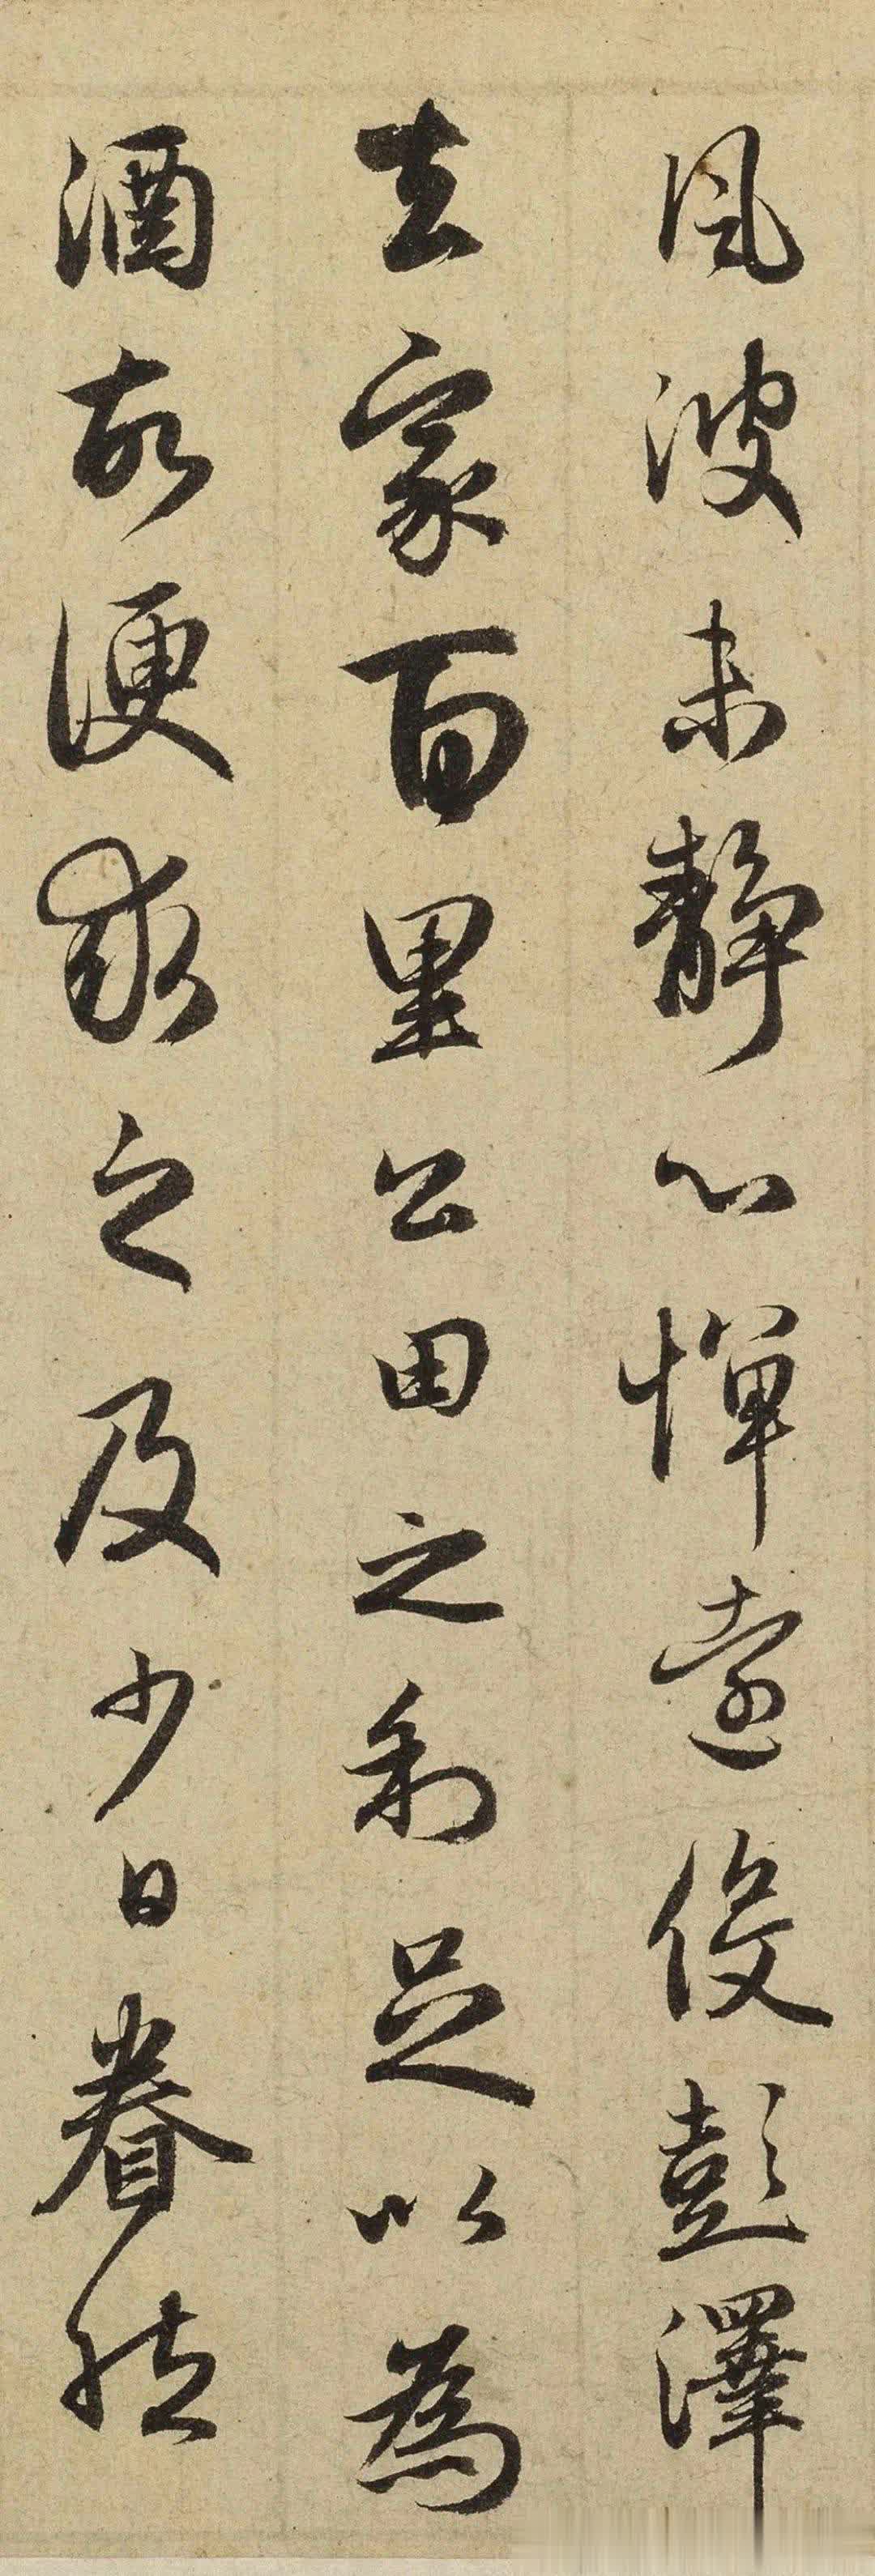 風波未靜心憚遠役彭澤
去家百里公田之利足以為
酒故便求之及少日眷然